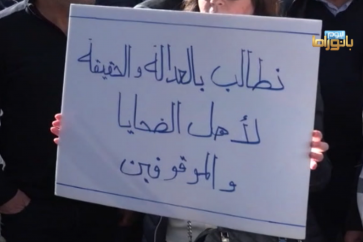 بانوراما
نطالب بالعدالة والحقيقة
لأهل الضحايا
والموقوفين